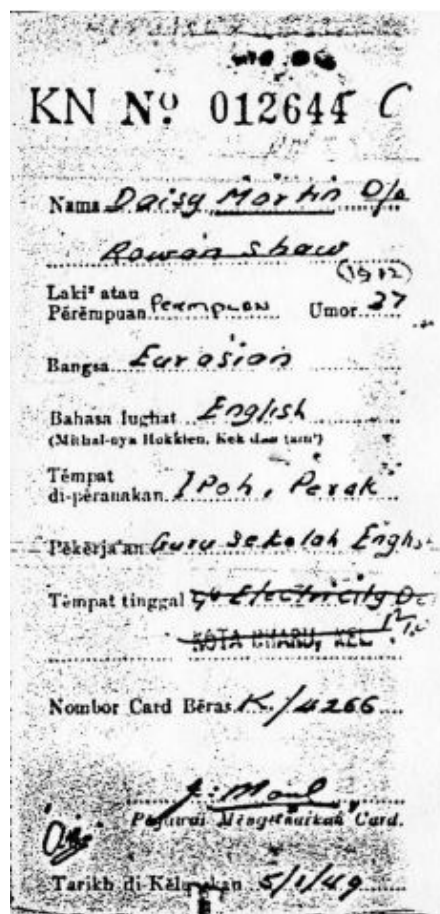 KN No 012644 C
Nama Daisy Martin D/o
Rowan Shaw
(1912)
Laki² atau
Pĕrĕmpuan Perempuan Umor 37
Bangsa Eurasian
Bahasa lughat English
(Mithal-nya Hokkien, Kek dan lain²)
Tĕmpat
di-pĕranakan Ipoh, Perak
Pĕkĕrja'an Guru Sekolah English
Tĕmpat tinggal Electricity
KOTA BHARU, KEL.
Nombor Card Bĕras K/4266
Pĕgawai Mĕngĕluarkan Card.
Tarikh di-Kĕluarkan 5/1/49